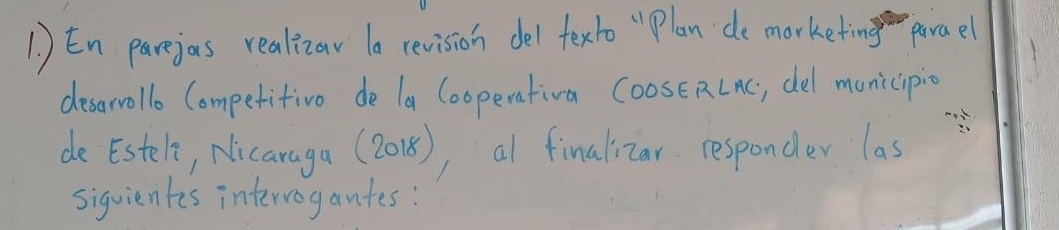 1.) En parejas realizar la revisión del texto "Plan de marketing" para el
desarrollo Competitivo de la Cooperativa COOSERLAC;, del municipio
de Estelí, Nicaragua (2018), al finalizar responder las
siguientes interrogantes: